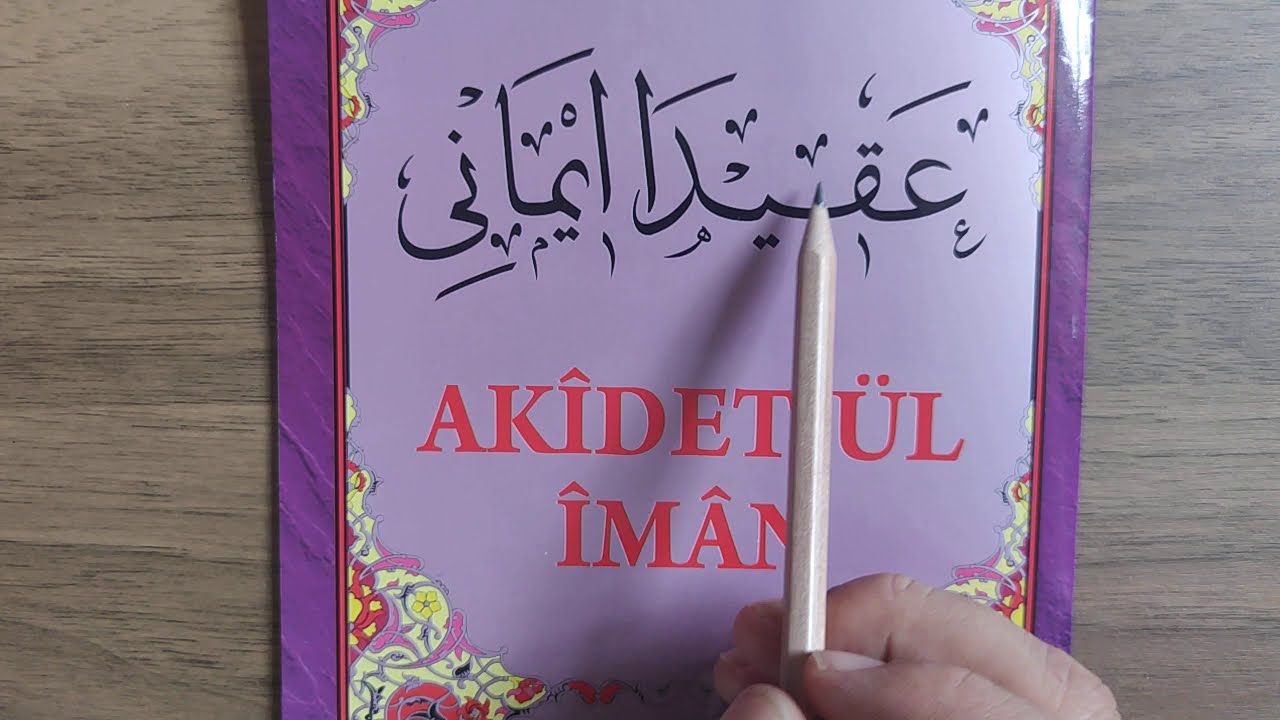 عَقيدَا ايْمَانِى
AKÎDET ÜL
ÎMÂN